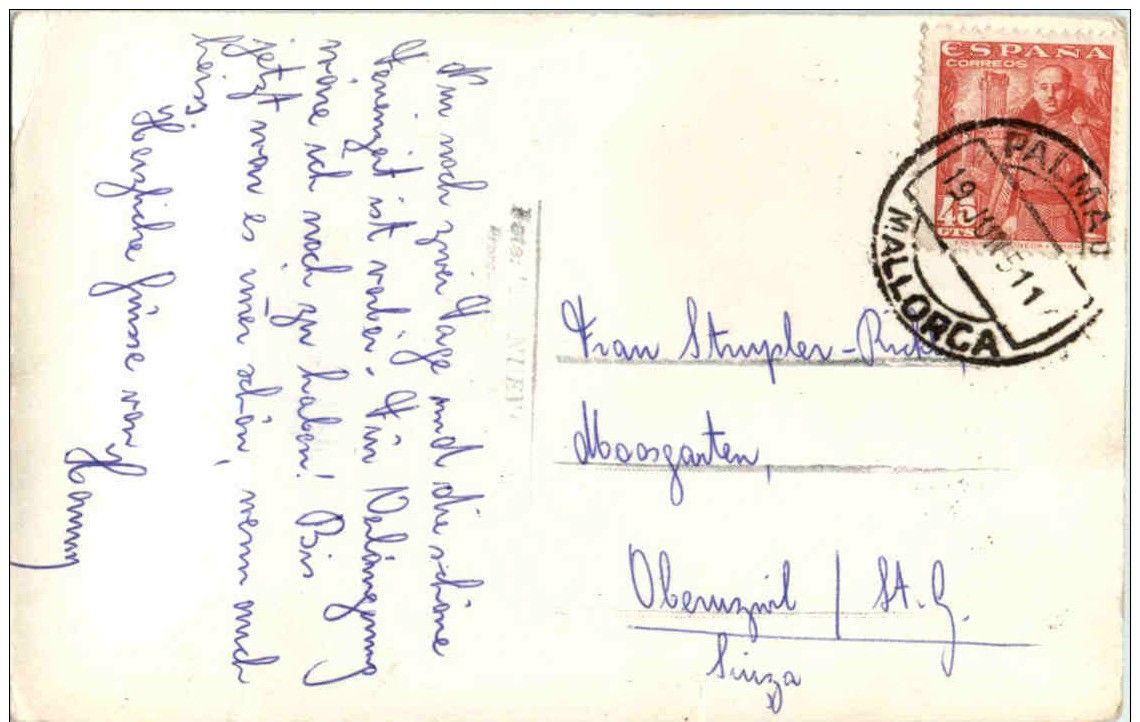 Nur noch zwei Tage und die schöne
Ferienzeit ist vorbei. Für Verlängerung
wäre ich noch zu haben! Bis
jetzt war es im̄er schön, wenn auch
heiss.
Herzliche Grüsse von
Hanny
ESPAÑA
CORREOS
PTS
PALMA
19 JUN 51 1
MALLORCA
Frau Strupler-
Moosgarten,
Oberuzwil / St. G.
Suiza